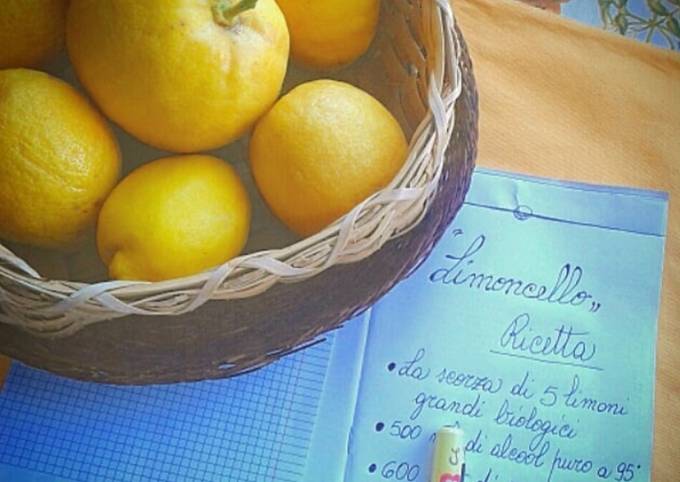 "Limoncello"
Ricetta
• La scorza di 5 limoni
grandi biologici
• 500 di alcool puro a 95°
• 600